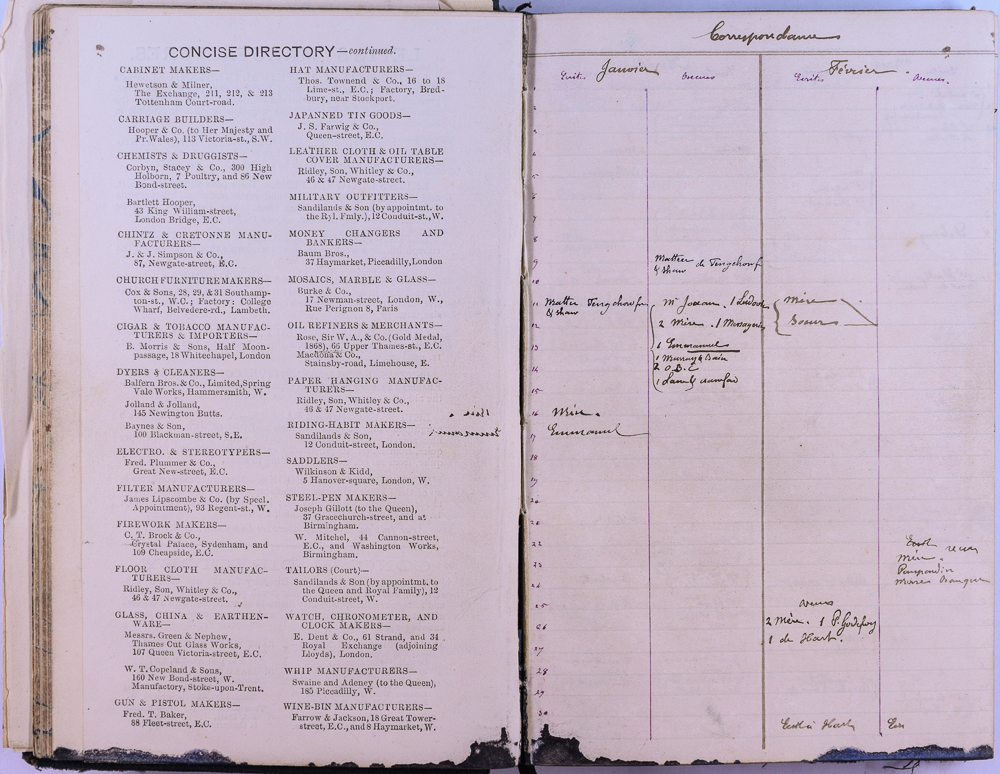 CONCISE DIRECTORY—continued.
CABINET MAKERS—
Hewetson & Milner,
The Exchange, 211, 212, & 213
Tottenham Court-road.
CARRIAGE BUILDERS—
Hooper & Co. (to Her Majesty and
Pr. Wales), 113 Victoria-st., S.W.
CHEMISTS & DRUGGISTS—
Corbyn, Stacey & Co., 300 High
Holborn, 7 Poultry, and 86 New
Bond-street.
Bartlett Hooper,
43 King William-street,
London Bridge, E.C.
CHINTZ & CRETONNE MANU-
FACTURERS—
J. & J. Simpson & Co.,
87, Newgate-street, E.C.
CHURCH FURNITURE MAKERS—
Cox & Sons, 28, 29, & 31 Southamp-
ton-st., W.C.; Factory: College
Wharf, Belvedere-rd., Lambeth.
CIGAR & TOBACCO MANUFAC-
TURERS & IMPORTERS—
B. Morris & Sons, Half Moon-
passage, 18 Whitechapel, London
DYERS & CLEANERS—
Balfern Bros. & Co., Limited, Spring
Vale Works, Hammersmith, W.
Jolland & Jolland,
145 Newington Butts.
Baynes & Son,
100 Blackman-street, S.E.
ELECTRO. & STEREOTYPERS—
Fred. Plummer & Co.,
Great New-street, E.C.
FILTER MANUFACTURERS—
James Lipscombe & Co. (by Specl.
Appointment), 93 Regent-st., W.
FIREWORK MAKERS—
C. T. Brock & Co.,
Crystal Palace, Sydenham, and
109 Cheapside, E.C.
FLOOR CLOTH MANUFAC-
TURERS—
Ridley, Son, Whitley & Co.,
46 & 47 Newgate-street.
GLASS, CHINA & EARTHEN-
WARE—
Messrs. Green & Nephew,
Thames Cut Glass Works,
107 Queen Victoria-street, E.C.
W. T. Copeland & Sons,
160 New Bond-street, W.
Manufactory, Stoke-upon-Trent.
GUN & PISTOL MAKERS—
Fred. T. Baker,
88 Fleet-street, E.C.
HAT MANUFACTURERS—
Thos. Townend & Co., 16 to 18
Lime-st., E.C.; Factory, Bred-
bury, near Stockport.
JAPANNED TIN GOODS—
J. S. Farwig & Co.,
Queen-street, E.C.
LEATHER CLOTH & OIL TABLE
COVER MANUFACTURERS—
Ridley, Son, Whitley & Co.,
46 & 47 Newgate-street.
MILITARY OUTFITTERS—
Sandilands & Son (by appointmt. to
the Ryl. Fmly.), 12 Conduit-st., W.
MONEY CHANGERS AND
BANKERS—
Baum Bros.,
37 Haymarket, Piccadilly, London
MOSAICS, MARBLE & GLASS—
Burke & Co.,
17 Newman-street, London, W.,
Rue Perignon 8, Paris
OIL REFINERS & MERCHANTS—
Rose, Sir W. A., & Co. (Gold Medal,
1868), 66 Upper Thames-st., E.C.
& Co.,
Stainsby-road, Limehouse, E.
PAPER HANGING MANUFAC-
TURERS—
Ridley, Son, Whitley & Co.,
46 & 47 Newgate-street.
RIDING-HABIT MAKERS—
Sandilands & Son,
12 Conduit-street, London.
SADDLERS—
Wilkinson & Kidd,
5 Hanover-square, London, W.
STEEL-PEN MAKERS—
Joseph Gillott (to the Queen),
37 Gracechurch-street, and at
Birmingham.
W. Mitchel, 44 Cannon-street,
E.C., and Washington Works,
Birmingham.
TAILORS (Court)—
Sandilands & Son (by appointmt. to
the Queen and Royal Family), 12
Conduit-street, W.
WATCH, CHRONOMETER, AND
CLOCK MAKERS—
E. Dent & Co., 61 Strand, and 34
Royal Exchange (adjoining
Lloyds), London.
WHIP MANUFACTURERS—
Swaine and Adeney (to the Queen),
185 Piccadilly, W.
WINE-BIN MANUFACTURERS—
Farrow & Jackson, 18 Great Tower-
street, E.C., and 8 Haymarket, W.
Correspondance
Janvier Février
8
9
& Shaw de
11
& Shaw
12 2 Mère.
Mère
Soeurs
13 1 Emmanuel
1 Murray &
14 2 O.B.C
15 1
16 Mère.
17 Emmanuel
18
19
22
23 Mère.
25
26 2 Mère. 1 P. Godefroy
1 de Hart.
27
28
29
30